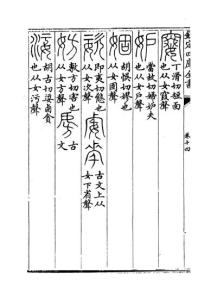 欽定四庫全書
卷十四
嬼丁滑切短面也从女窡聲
妒當故切婦妒夫也从女戶聲
婟胡悞切嫪也从女固聲
姿即夷切態也从女次聲
古文上从女下省聲
妨敷方切害也从女方聲
古文
胡古切鹵貪也从女污聲